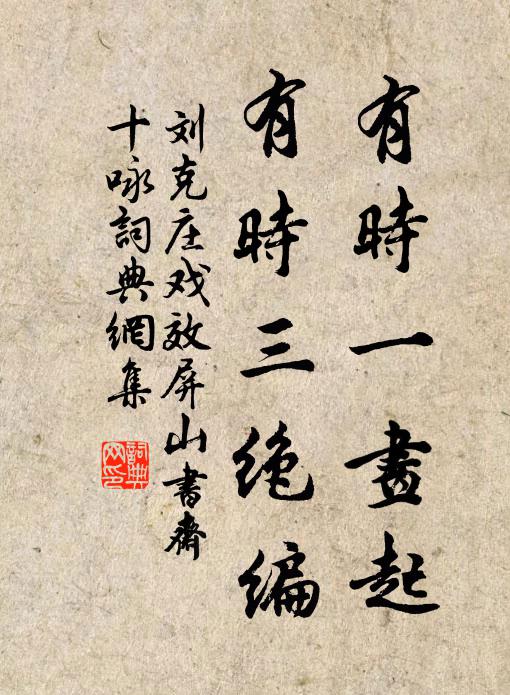 有時一畫起
有時三绝编
刘克庄戏效屏山書齋
十咏詞典網集
詞典网印